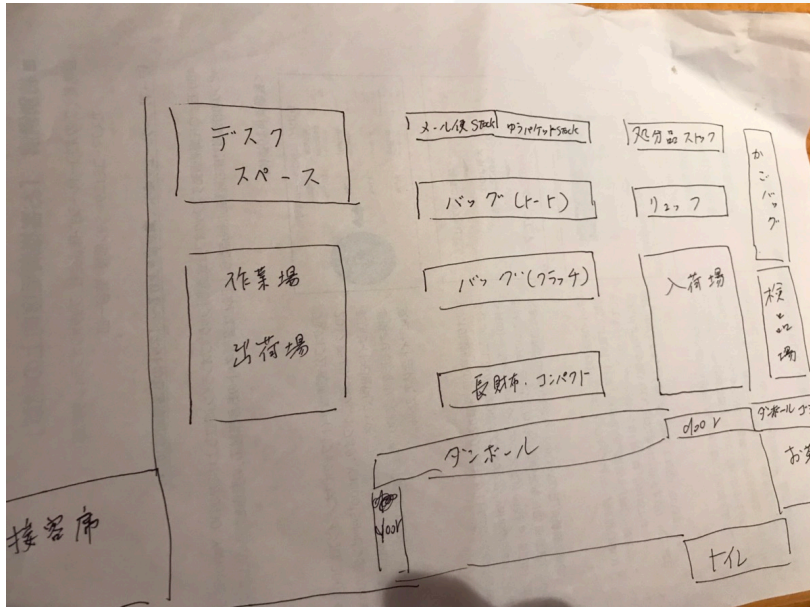 デスク
スペース
メール便 Stock
ゆうパケット Stock
処分品ストック
かごバッグ
バッグ(トート)
リュック
作業場
出荷場
バッグ(クラッチ)
入荷場
検品場
長財布・コンパクト
ダンボール
door
ダンボール
door
接客席
トイレ